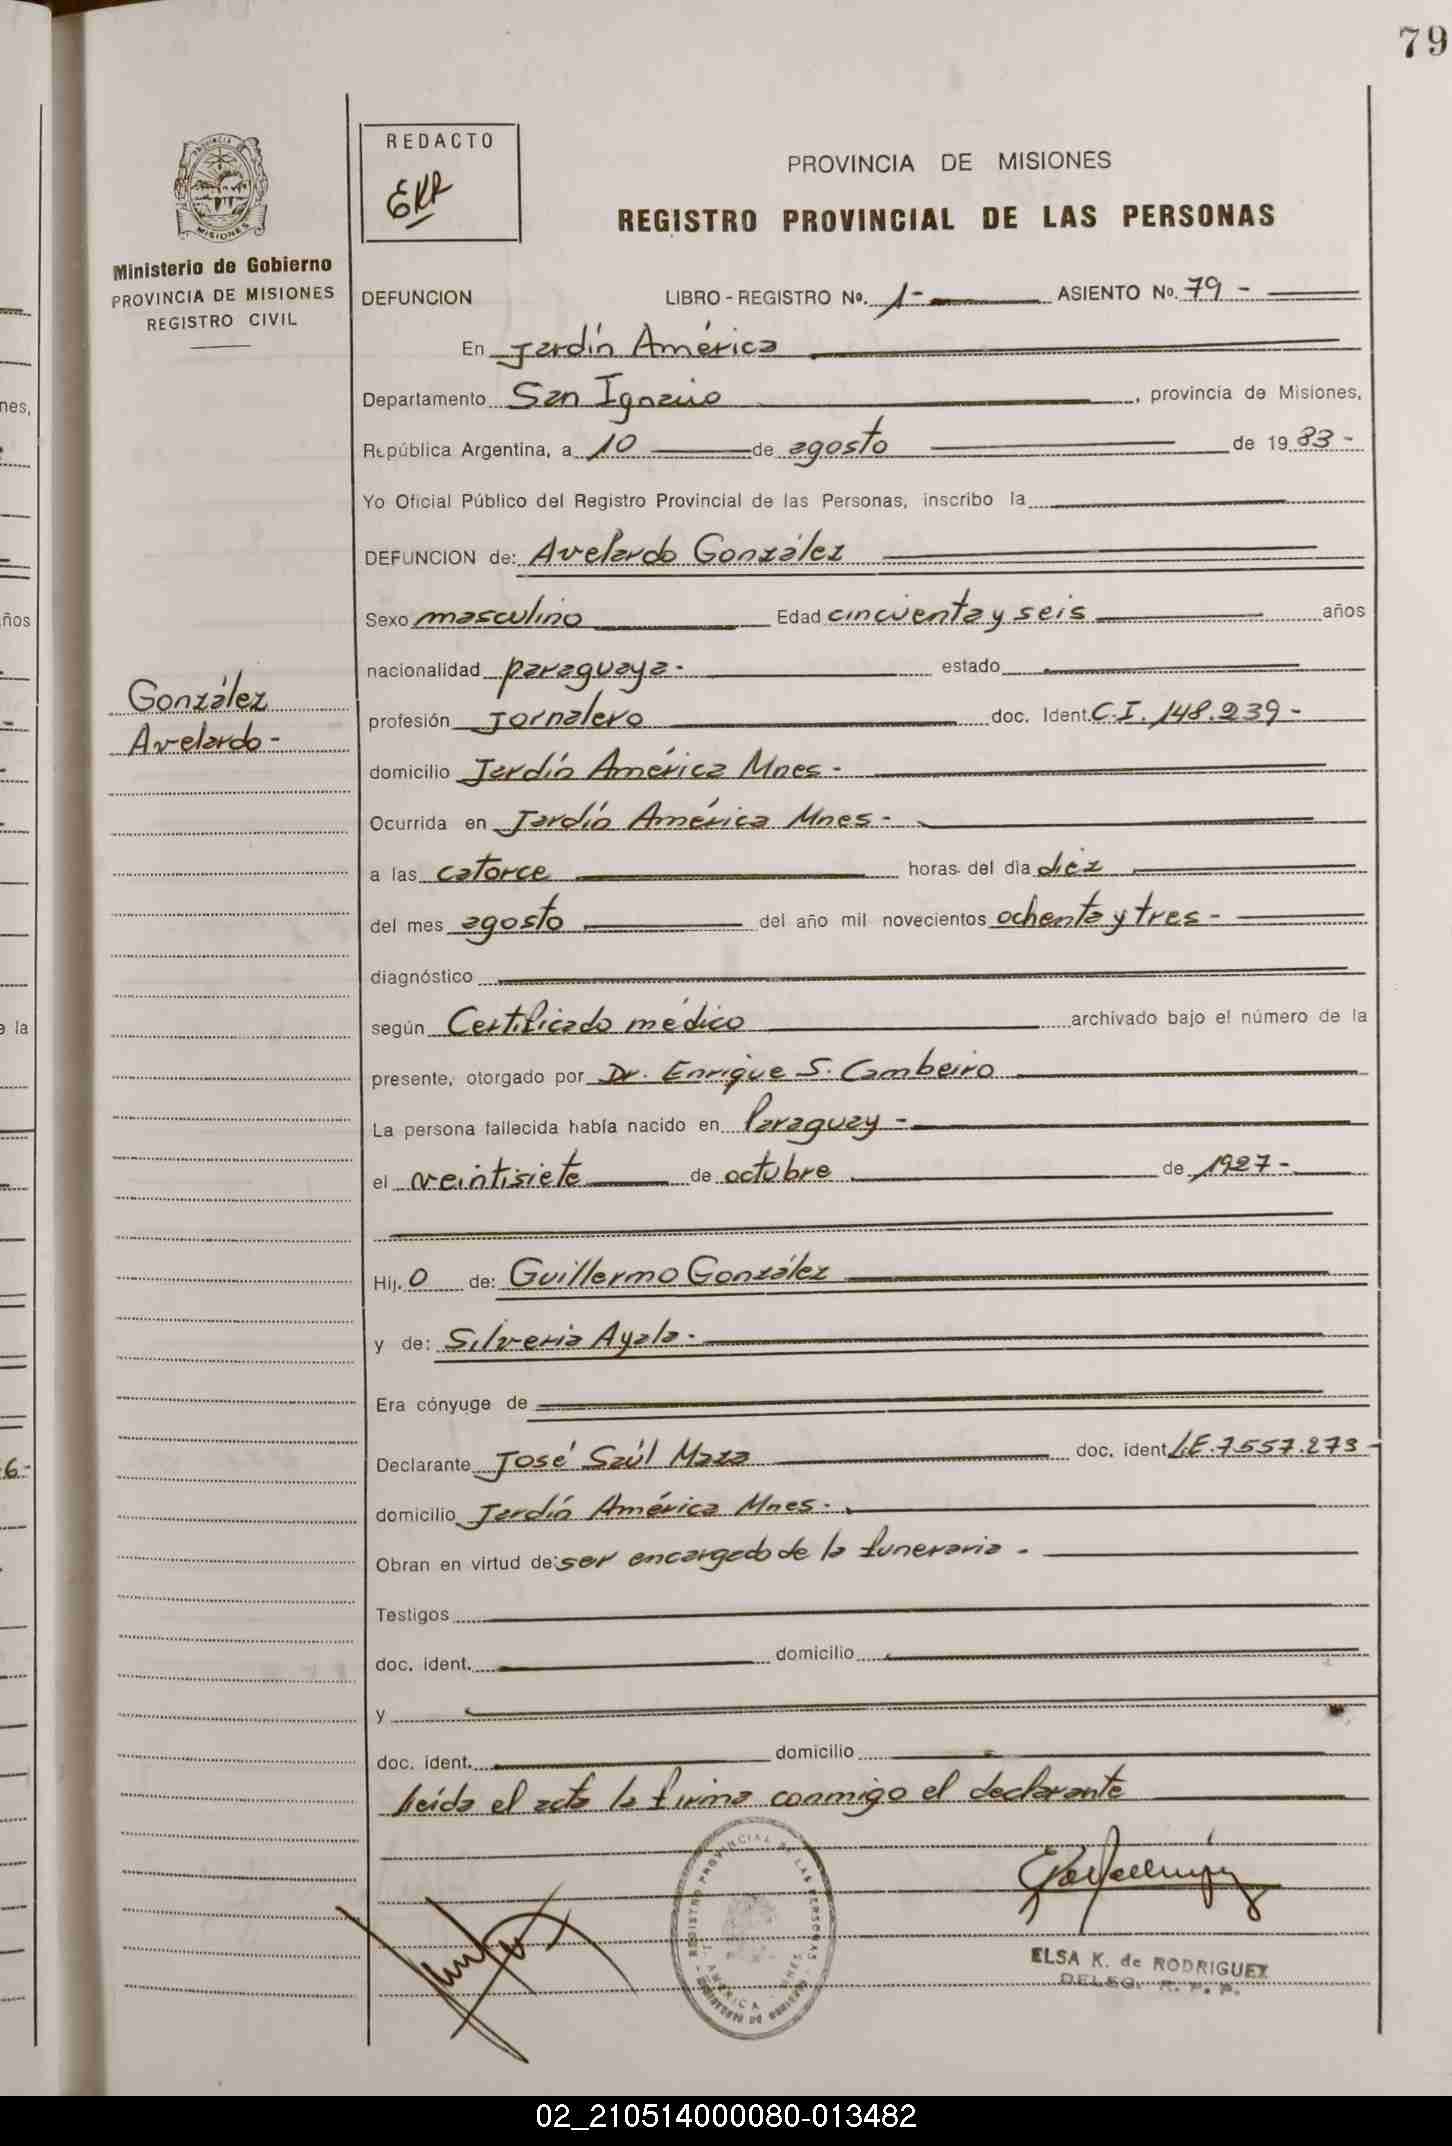 79
REDACTO
EKR
PROVINCIA DE MISIONES
REGISTRO PROVINCIAL DE LAS PERSONAS
MISIONES
Ministerio de Gobierno
PROVINCIA DE MISIONES
REGISTRO CIVIL
DEFUNCION LIBRO - REGISTRO No. 1 - ASIENTO No. 79 -
En Jardín América
Departamento San Ignacio, provincia de Misiones,
República Argentina, a 10 de agosto de 1983 -
Yo Oficial Público del Registro Provincial de las Personas, inscribo la
DEFUNCION de: Avelardo González
Sexo masculino Edad cincuenta y seis años
nacionalidad paraguaya - estado
González
Avelardo -
profesión Jornalero doc. Ident. C.I. 148.239 -
domicilio Jardín América Mnes -
Ocurrida en Jardín América Mnes -
a las catorce horas del día diez
del mes agosto del año mil novecientos ochenta y tres -
diagnóstico
según Certificado médico archivado bajo el número de la
presente, otorgado por Dr. Enrique S. Cambeiro
La persona fallecida había nacido en Paraguay -
el veintisiete de octubre de 1927 -
Hij. o de: Guillermo González
y de: Silveria Ayala -
Era cónyuge de
Declarante José Saúl Maza doc. ident L.E. 7557.273 -
domicilio Jardín América Mnes -
Obran en virtud de: ser encargado de la funeraria -
Testigos
doc. ident. domicilio
y
doc. ident. domicilio
leída el acta la firma conmigo el declarante
REGISTRO PROVINCIAL DE LAS PERSONAS
ELSA K. de RODRIGUEZ
DELEG. R. P. P.
02_210514000080-013482